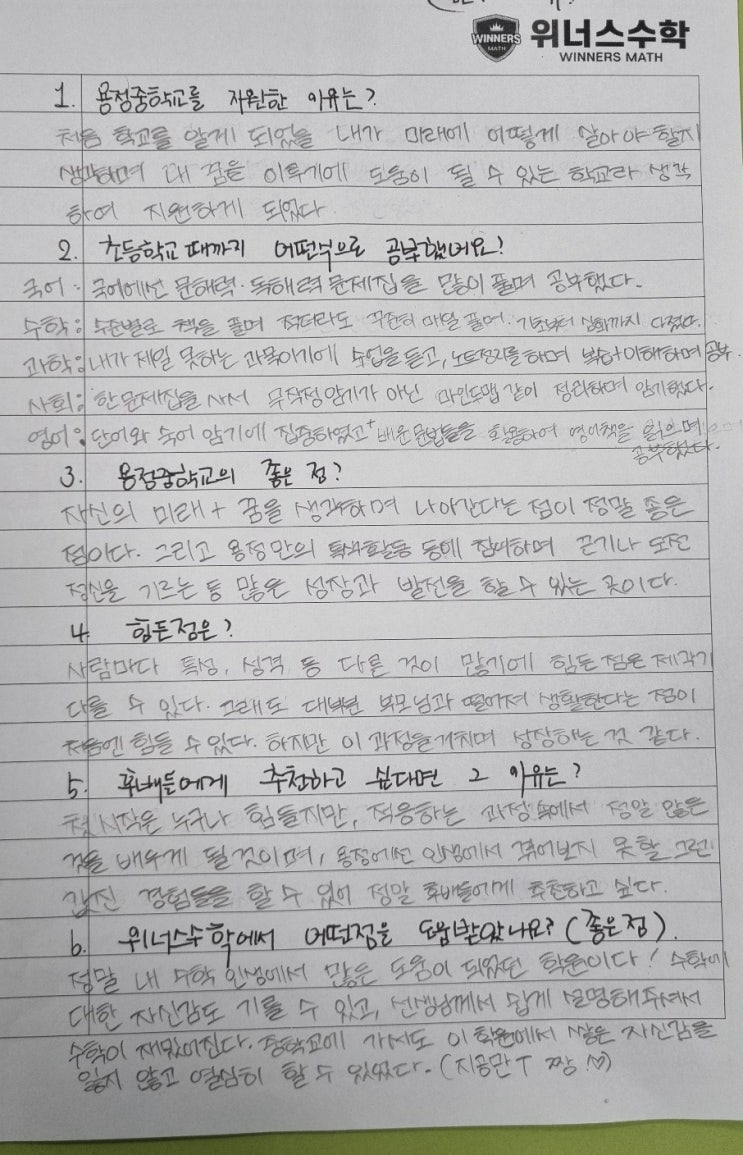 WINNERS
MATH
위너스수학
WINNERS MATH
1. 용정중학교를 지원한 이유는?
처음 학교를 알게 되었을 내가 미래에 어떻게 살아야 할지
생각하며 내 꿈을 이루기에 도움이 될 수 있는 학교라 생각
하여 지원하게 되었다.
2. 초등학교 때까지 어떤식으로 공부했나요?
국어: 국어에선 문해력·독해력 문제집을 많이 풀며 공부했다.
수학: 수준별로 책을 풀며 적더라도 꾸준히 매일 풀며, 기초부터 심화까지 다졌다.
과학: 내가 제일 못하는 과목이기에 수업을 듣고, 노트정리를 하며 복습+이해하며 공부.
사회: 한 문제집을 사서 무작정 암기가 아닌 마인드맵 같이 정리하며 암기했다.
영어: 단어와 숙어 암기에 집중하였고 + 배운 문법들을 활용하여 영어책을 읽으며
공부했다.
3. 용정중학교의 좋은 점?
자신의 미래 + 꿈을 생각하며 나아간다는 점이 정말 좋은
점이다. 그리고 용정만의 특색활동 등에 참여하며 끈기나 도전
정신을 기르는 등 많은 성장과 발전을 할 수 있는 곳이다.
4. 힘든점은?
사람마다 특성, 성격 등 다른 것이 많기에 힘든 점은 제각기
다를 수 있다. 그래도 대부분 부모님과 떨어져 생활한다는 점이
처음엔 힘들 수 있다. 하지만 이 과정을 거치며 성장하는 것 같다.
5. 후배들에게 추천하고 싶다면 그 이유는?
첫 시작은 누구나 힘들지만, 적응하는 과정 속에서 정말 많은
것을 배우게 될 것이며, 용정에선 인생에서 겪어보지 못할 그런
값진 경험들을 할 수 있어 정말 후배들에게 추천하고 싶다.
6. 위너스수학에서 어떤점을 도움받았나요? (좋은점).
정말 내 수학 인생에서 많은 도움이 되었던 학원이다! 수학에
대한 자신감도 기를 수 있고, 선생님께서 쉽게 설명해주셔서
수학이 재밌어진다. 중학교에 가서도 이 학원에서 쌓은 자신감을
잃지 않고 열심히 할 수 있었다. (지공만T 짱 ♡)